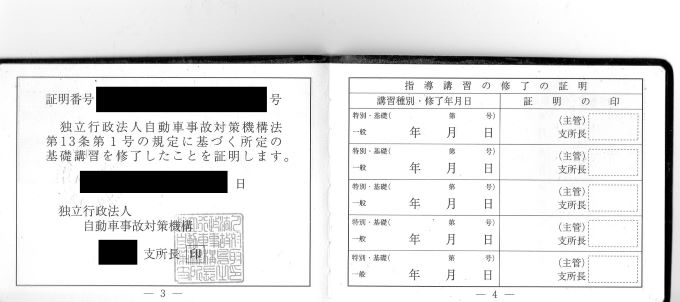 証明番号 号
独立行政法人自動車事故対策機構法
第13条第1号の規定に基づく所定の
基礎講習を修了したことを証明します。
日
独立行政法人
自動車事故対策機構
支所長 印
― 3 ―
指導講習の修了の証明
講習種別・修了年月日 証明の印
特別・基礎( 第 号) (主管)
一般 年 月 日 支所長
特別・基礎( 第 号) (主管)
一般 年 月 日 支所長
特別・基礎( 第 号) (主管)
一般 年 月 日 支所長
特別・基礎( 第 号) (主管)
一般 年 月 日 支所長
特別・基礎( 第 号) (主管)
一般 年 月 日 支所長
― 4 ―